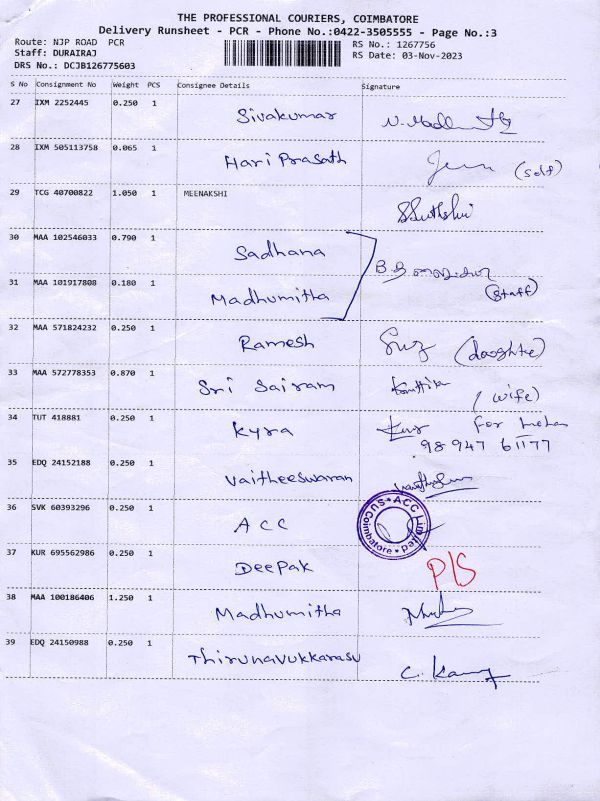 THE PROFESSIONAL COURIERS, COIMBATORE
Delivery Runsheet - PCR - Phone No.:0422-3505555 - Page No.:3
Route: NJP ROAD PCR
RS No.: 1267756
Staff: DURAIRAJ
RS Date: 03-Nov-2023
DRS No.: DCJB126775603
S No Consignment No Weight PCS Consignee Details Signature
27 IXM 2252445 0.250 1 Sivakumar
28 IXM 505113758 0.065 1 Hari Prasath (self)
29 TCG 40700822 1.050 1 MEENAKSHI
30 MAA 102546033 0.790 1 Sadhana
31 MAA 101917808 0.180 1 Madhumitha (staff)
32 MAA 571824232 0.250 1 Ramesh (daoghter)
33 MAA 572778353 0.870 1 Sri Sairam (wife)
34 TUT 418881 0.250 1 Kyra For
98947 61177
35 EDQ 24152188 0.250 1 Vaitheeswaran
36 SVK 60393296 0.250 1 ACC ACC Limited Coimbatore
37 KUR 695562986 0.250 1 Deepak P/S
38 MAA 100186406 1.250 1 Madhumitha
39 EDQ 24150988 0.250 1 Thirunavukkarasu